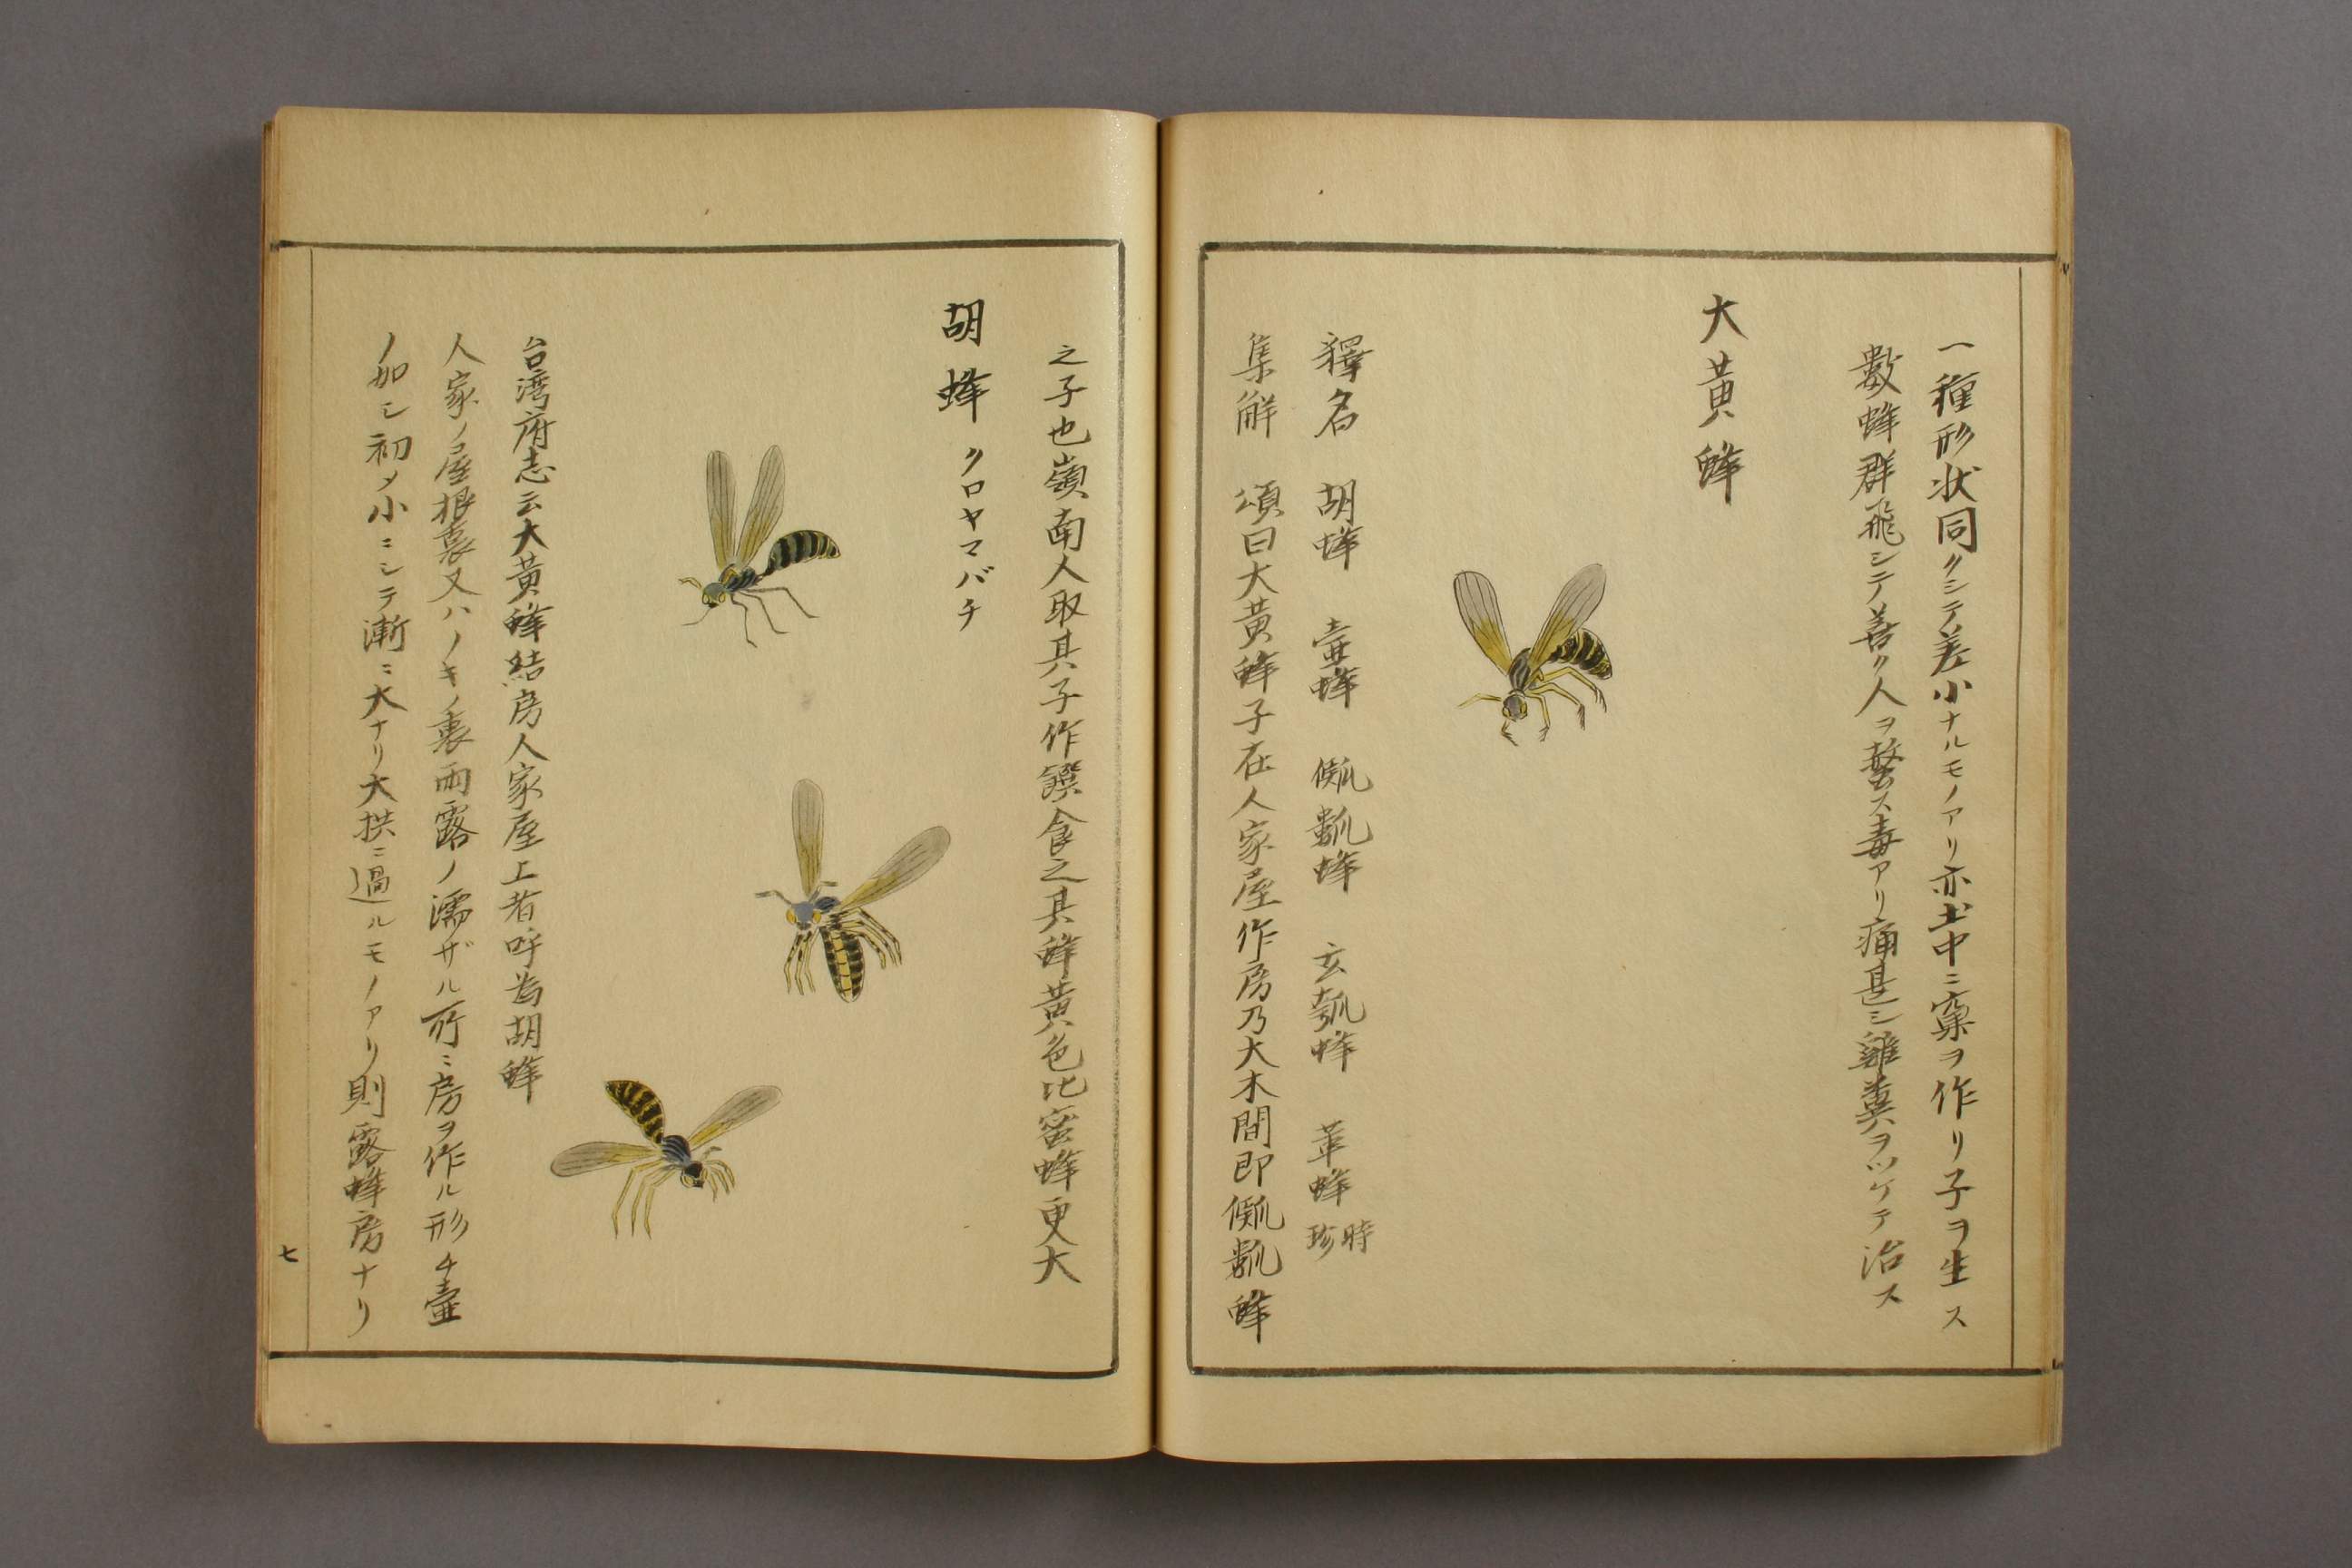 一種形状同クシテ差小ナルモノアリ亦土中ニ窠ヲ作リ子ヲ生ス
數蜂群飛シテ善ク人ヲ螫ス毒アリ痛甚シ雞糞ヲツケテ治ス
大黄蜂
釋名 胡蜂 壷蜂 㼋瓤蜂 玄瓠蜂 革蜂 時珍
集解 頌曰大黄蜂子在人家屋作房乃大木間即㼋瓤蜂
之子也嶺南人取其子作饌食之其蜂黄色比蜜蜂更大
胡蜂 クロヤマバチ
台湾府志云大黄蜂結房人家屋上者呼為胡蜂
人家ノ屋根裏又ハノキノ裏雨露ノ濡ザル所ニ房ヲ作ル形チ壷
ノ如シ初メ小ニシテ漸ニ大ナリ大拱ニ過ルモノアリ則露蜂房ナリ
七